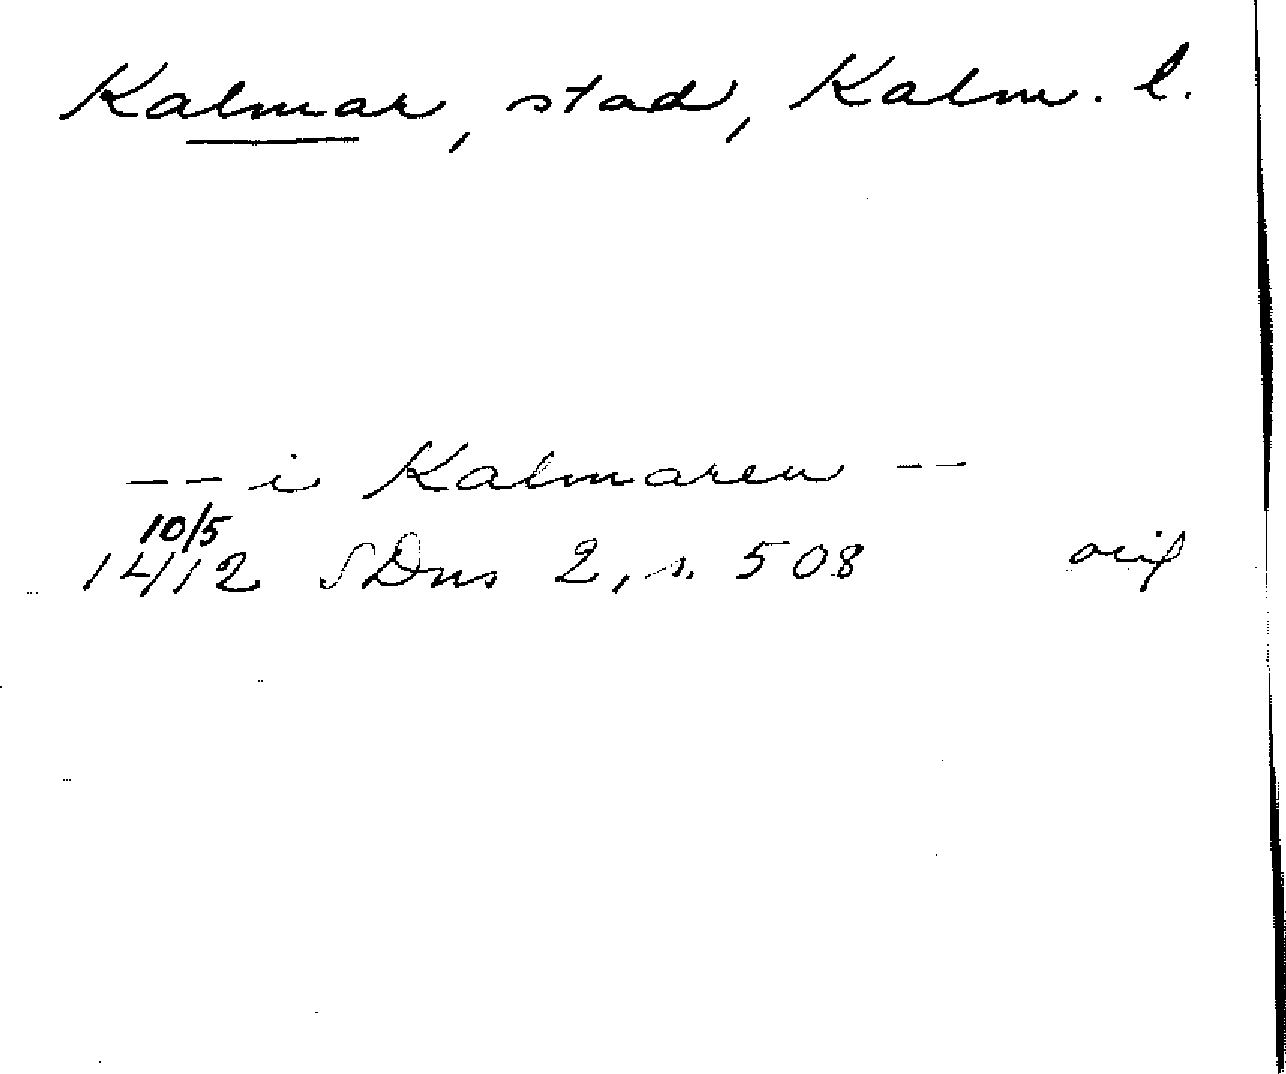 Kalmar, stad, Kalm. l.
-- i Kalmaren --
10/5
1412 SDns 2, s. 508 orig